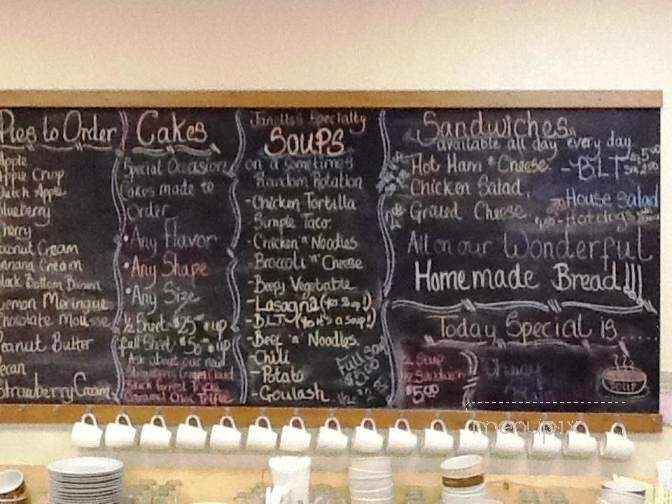 Pies to Order
Apple
Apple Crisp
Dutch Apple
Blueberry
Cherry
Coconut Cream
Banana Cream
Black Bottom
Lemon Meringue
Chocolate Mousse
Peanut Butter
Pecan
Strawberry Cream
Cakes
Special Occasion
Cakes made to
Order
•Any Flavor
•Any Shape
•Any Size
½ Sheet $25 & up
full Sheet $50 & up
Ask about our new
Black Forrest Trifle
Caramel Choc Trifle
Janette's Specialty
SOUPS
on a sometimes
Random Rotation
-Chicken Tortilla
Simple Taco
-Chicken 'n' Noodles
-Broccoli 'n' Cheese
-Beefy Vegetable
-Lasagna (Yes Soup!)
-BLT (Yes it's a Soup!)
-Beef 'n' Noodles
-Chili
-Potato
-Goulash
Sandwiches
available all day every day
Hot Ham & Cheese
-BLT
Chicken Salad
House Salad
Grilled Cheese
-Hot dogs
All on our Wonderful
Homemade Bread!!!
Today Special is
Soup
Sandwich
$5.00
Soup
menupix